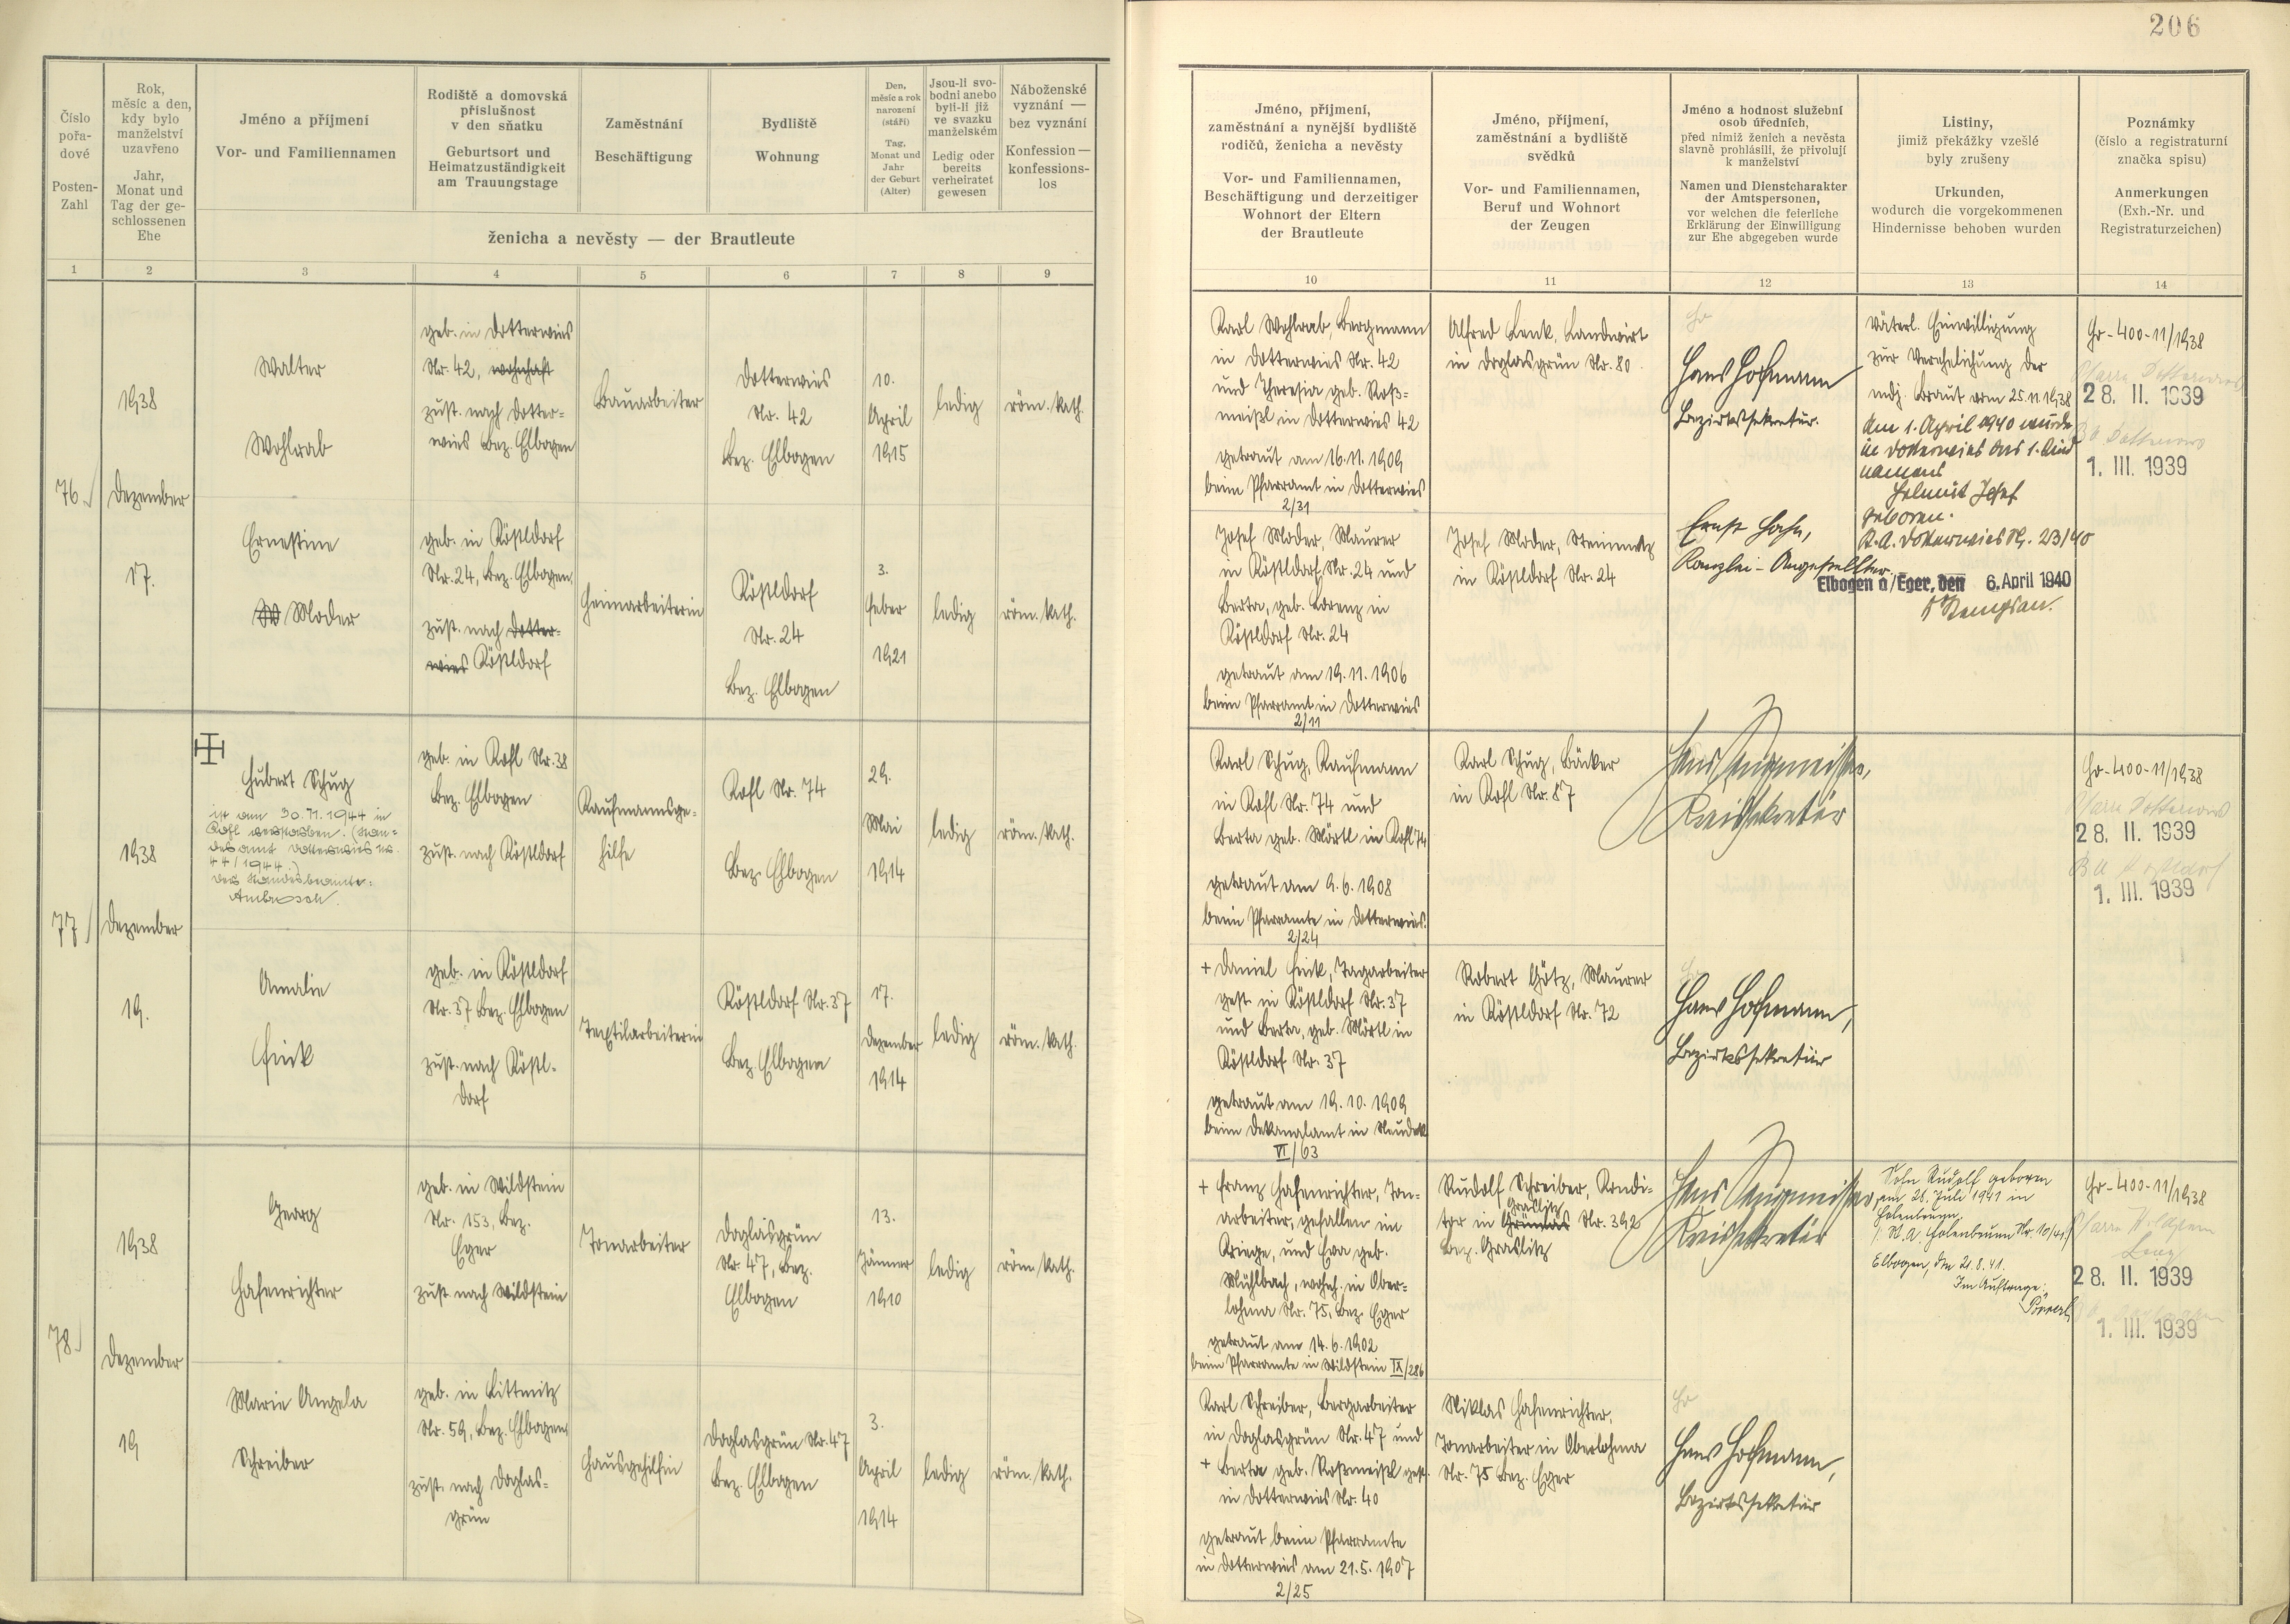 206
Číslo
pořa-
dové
Posten-
Zahl
Rok,
měsíc a den,
kdy bylo
manželství
uzavřeno
Jahr,
Monat und
Tag der ge-
schlossenen
Ehe
Jméno a příjmení
Vor- und Familiennamen
Rodiště a domovská
příslušnost
v den sňatku
Geburtsort und
Heimatzuständigkeit
am Trauungstage
Zaměstnání
Beschäftigung
Bydliště
Wohnung
Den,
měsíc a rok
narození
(stáří)
Tag,
Monat und
Jahr
der Geburt
(Alter)
Jsou-li svo-
bodni anebo
byli-li již
ve svazku
manželském
Ledig oder
bereits
verheiratet
gewesen
Náboženské
vyznání —
bez vyznání
Konfession —
konfessions-
los
ženicha a nevěsty — der Brautleute
Jméno, příjmení,
zaměstnání a nynější bydliště
rodičů, ženicha a nevěsty
Vor- und Familiennamen,
Beschäftigung und derzeitiger
Wohnort der Eltern
der Brautleute
Jméno, příjmení,
zaměstnání a bydliště
svědků
Vor- und Familiennamen,
Beruf und Wohnort
der Zeugen
Jméno a hodnost služební
osob úředních,
před nimiž ženich a nevěsta
slavně prohlásili, že přivolují
k manželství
Namen und Dienstcharakter
der Amtspersonen,
vor welchen die feierliche
Erklärung der Einwilligung
zur Ehe abgegeben wurde
Listiny,
jimiž překážky vzešlé
byly zrušeny
Urkunden,
wodurch die vorgekommenen
Hindernisse behoben wurden
Poznámky
(číslo a registraturní
značka spisu)
Anmerkungen
(Exh.-Nr. und
Registraturzeichen)
1 2 3 4 5 6 7 8 9 10 11 12 13 14
76.
1938
Dezember
17.
Walter
Wohlrab
geb. in Dotterwies
Nr. 42, wohnhaft
zust. nach Dotter-
wies Bez. Elbogen
Bauarbeiter
Dotterwies
Nr. 42
Bez. Elbogen
10.
April
1915
ledig
röm. kath.
Karl Wohlrab, Bergmann
in Dotterwies Nr. 42
und Theresia geb. Roß-
meißl in Dotterwies 42
getraut am 16.11.1909
beim Pfarramt in Dotterwies
2/31
Alfred Lenk, Landwirt
in Doglasgrün Nr. 80
Hans Hofmann
Bezirkssekretär.
Väterl. Einwilligung
zur Verehelichung der
mdj. Braut vom 25.11.1938
Am 1. April 1940 wurde
in Dotterwies das 1. Kind
namens
Helmut Josef
geboren.
St.A. Dotterwies Nr. 23/40
Elbogen a/Eger, den 6. April 1940
Gr-400-11/1938
Pfarre Dotterwies
28. II. 1939
1. III. 1939
Ernestine
Moder
geb. in Köstldorf
Nr. 24, Bez. Elbogen
zust. nach Dotter-
wies Köstldorf
Heimarbeiterin
Köstldorf
Nr. 24
Bez. Elbogen
3.
Feber
1921
ledig
röm. kath.
Josef Moder, Maurer
in Köstldorf Nr. 24 und
Berta, geb. Lorenz in
Köstldorf Nr. 24
getraut am 19.11.1906
beim Pfarramt in Dotterwies
2/11
Josef Moder, Steinmetz
in Köstldorf Nr. 24
Ernst Hahn,
Kanzlei-Angestellter.
77
1938
Dezember
19.
Hubert Schug
ist am 30.11.1944 in
Kofl verstorben. (Stan-
desamt Dotterwies Nr.
44/1944.)
Der Standesbeamte:
Ambrosch.
geb. in Kofl Nr. 38
Bez. Elbogen
zust. nach Köstldorf
Kaufmannsge-
hilfe
Kofl Nr. 74
Bez. Elbogen
29.
Mai
1914
ledig
röm. kath.
Karl Schug, Kaufmann
in Kofl Nr. 74 und
Berta geb. Mörtl in Kofl 74
getraut am 9.6.1908
beim Pfarramte in Dotterwies.
2/24
Karl Schug, Bäcker
in Kofl Nr. 87
Kreissekretär
Gr-400-11/1938
Pfarre Dotterwies
28. II. 1939
1. III. 1939
Amalie
Fink
geb. in Köstldorf
Nr. 37 Bez. Elbogen
zust. nach Köstl-
dorf
Textilarbeiterin
Köstldorf Nr. 37
Bez. Elbogen
17.
Dezember
1914
ledig
röm. kath.
+ Daniel Fink, Tagarbeiter
gest. in Köstldorf Nr. 37
und Berta, geb. Mörtl in
Köstldorf Nr. 37
getraut am 19.10.1909
beim Dekanalamt in Neudek
VI/63
Robert Götz, Maurer
in Köstldorf Nr. 72
Hans Hofmann,
Bezirkssekretär
78.
1938
Dezember
19
Georg
Hafenrichter
geb. in Wildstein
Nr. 153, Bez.
Eger
zust. nach Wildstein
Tonarbeiter
Doglasgrün
Nr. 47, Bez.
Elbogen
13.
Jänner
1910
ledig
röm. kath.
+ Franz Hafenrichter, Ton-
arbeiter, gefallen im
Kriege, und Eva geb.
Mühlbach, wohnh. in Ober-
lohma Nr. 75, Bez. Eger
getraut am 14.6.1902
beim Pfarramte in Wildstein IX/286
Rudolf Schreiber, Kondi-
Graslitz
tor in Nr. 392
Bez. Graslitz
Kreissekretär
Sohn Rudolf geboren
am 28. Juli 1941 in
Holenbrunn.
St.A. Holenbrunn Nr. 10/41.
Elbogen, den 21.8.41.
Im Auftrage:
Gr-400-11/1938
Pfarre Wildstein
28. II. 1939
1. III. 1939
Marie Angela
Schreiber
geb. in Littmitz
Nr. 59, Bez. Elbogen
zust. nach Doglas-
grün
Hausgehilfin
Doglasgrün Nr. 47
Bez. Elbogen
3.
April
1914
ledig
röm. kath.
Karl Schreiber, Bergarbeiter
in Doglasgrün Nr. 47 und
+ Berta geb. Roßmeißl gest.
in Dotterwies Nr. 40
getraut beim Pfarramte
in Dotterwies am 21.5.1907
2/25
Niklas Hafenrichter,
Tonarbeiter in Oberlohma
Nr. 75 Bez. Eger
Hans Hofmann,
Bezirkssekretär